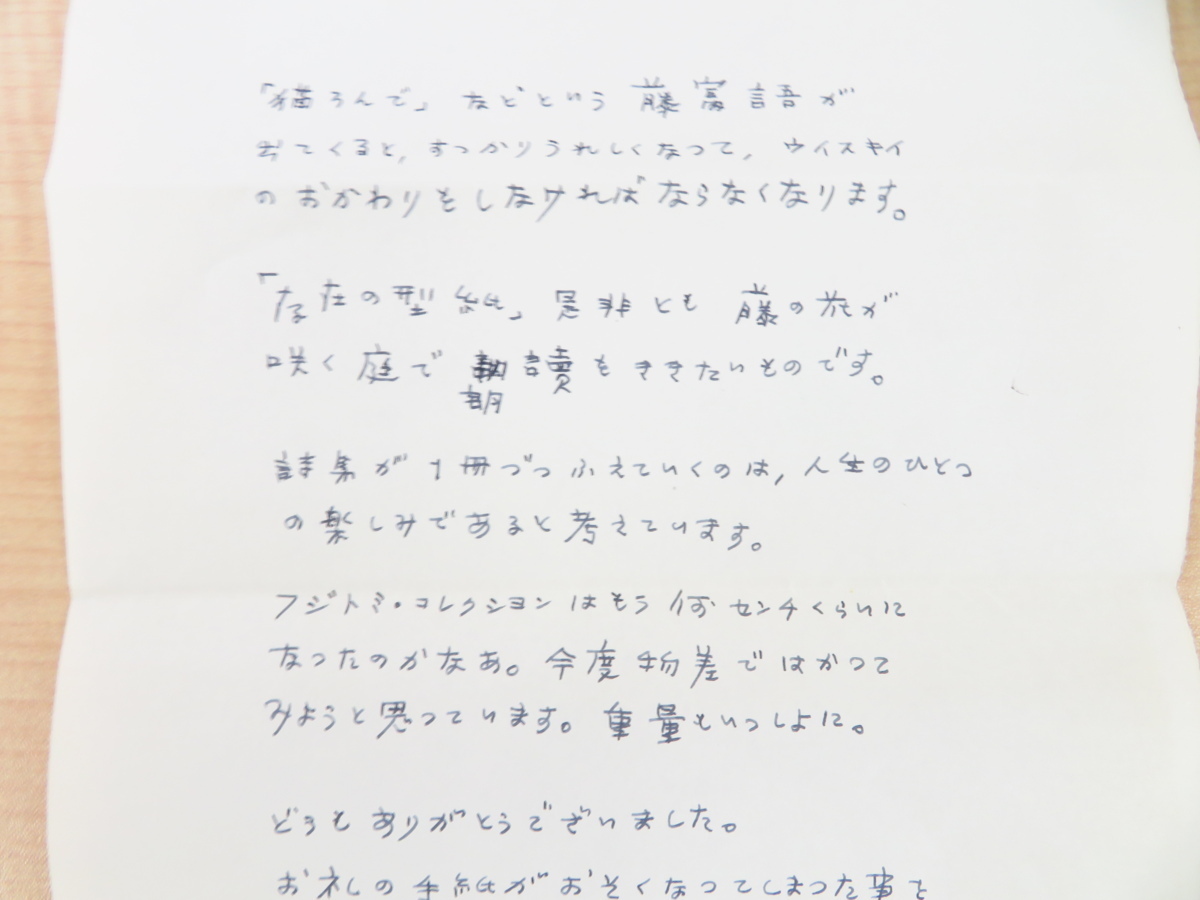 「猫ろんで」などという 藤富語が
出てくると,すっかりうれしくなって,ウイスキイ
のおかわりをしなければならなくなります。
「存在の型紙」是非とも 藤の花が
咲く庭で 朗讀をききたいものです。
詩集が1冊づつふえていくのは,人生のひとつ
の楽しみであると考えています。
フジトミ・コレクションはもう何センチくらいに
なったのかなあ。今度物差ではかって
みようと思っています。重量もいっしょに。
どうもありがとうございました。
お礼の手紙がおそくなってしまった事を